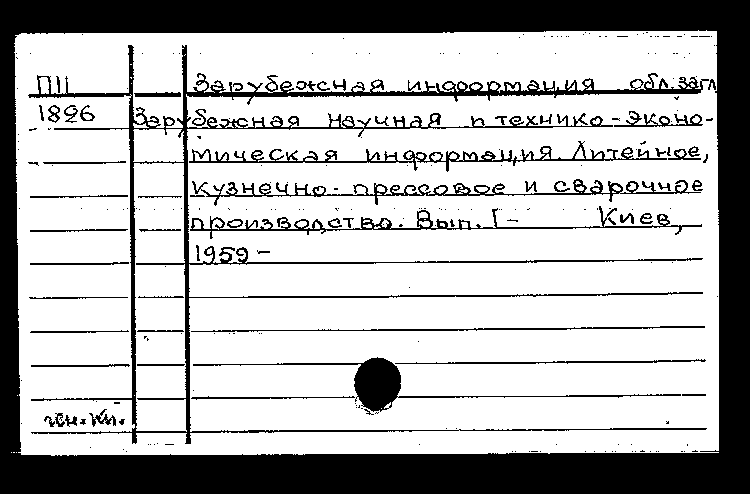 П11 Зарубежная информация обл. загл
1826 Зарубежная научная и технико-эконо-
мическая информация. Литейное,
кузнечно-прессовое и сварочное
производство. Вып. I- Киев,
1959-